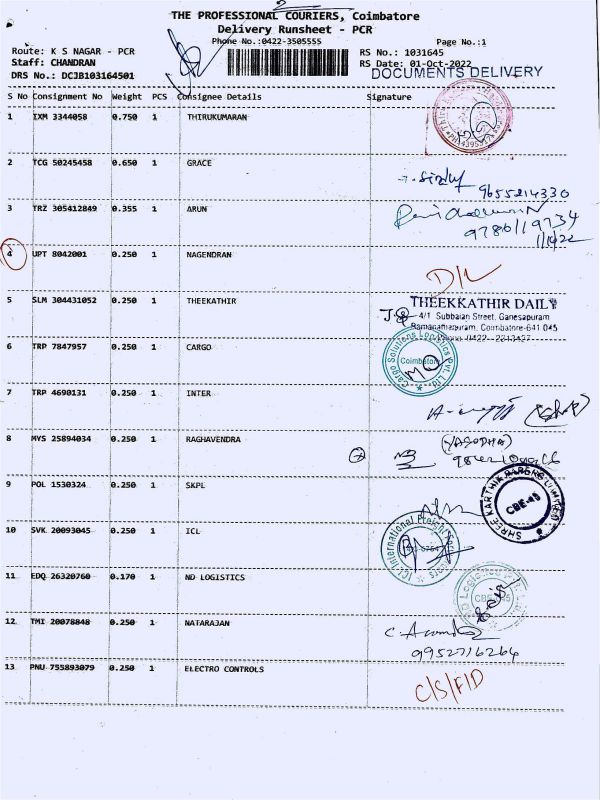 2
THE PROFESSIONAL COURIERS, Coimbatore
Delivery Runsheet - PCR
Phone No.:0422-3505555
Page No.:1
Route: K S NAGAR - PCR
RS No.: 1031645
Staff: CHANDRAN
RS Date: 01-Oct-2022
DRS No.: DCJB103164501
DOCUMENTS DELIVERY
S No Consignment No Weight PCS Consignee Details Signature
1 IXM 3344058 0.750 1 THIRUKUMARAN
2 TCG 50245458 0.650 1 GRACE
9655214330
3 TRZ 305412849 0.355 1 ARUN
9786119734
1/10/22
4 UPT 8042001 0.250 1 NAGENDRAN
D/L
5 SLM 304431052 0.250 1 THEEKATHIR
THEEKKATHIR DAILY
4/1 Subbaian Street, Ganesapuram
Ramanathapuram, Coimbatore-641 045
6 TRP 7847957 0.250 1 CARGO
Cargo Solutions Logistics Pvt. Ltd.
Coimbatore
7 TRP 4690131 0.250 1 INTER
8 MYS 25894034 0.250 1 RAGHAVENDRA
(YASODHA)
9 POL 1530324 0.250 1 SKPL
SHREE KARTHIK PAPERS LIMITED
CBE-45
10 SVK 20093045 0.250 1 ICL
ICL International Freight Forwarders
11 EDQ 26320760 0.170 1 ND LOGISTICS
12 TMI 20078848 0.250 1 NATARAJAN
9952716264
13 PNU 755893079 0.250 1 ELECTRO CONTROLS
C/S/F/D